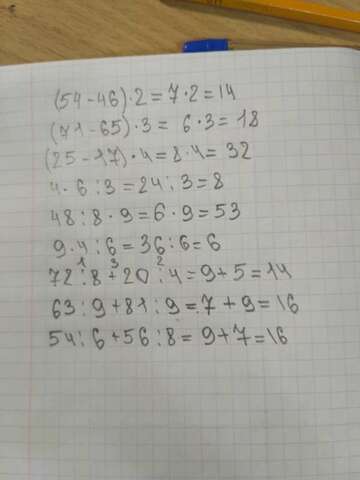 (54-46)·2=7·2=14
(71-65)·3= 6·3=18
(25-17)·4=8·4= 32
4·6:3=24:3=8
48:8·9=6·9=53
9·4:6=36:6=6
1 3 2
72:8+20:4=9+5=14
63:9+81:9=7+9=16
54:6+56:8= 9+7=16